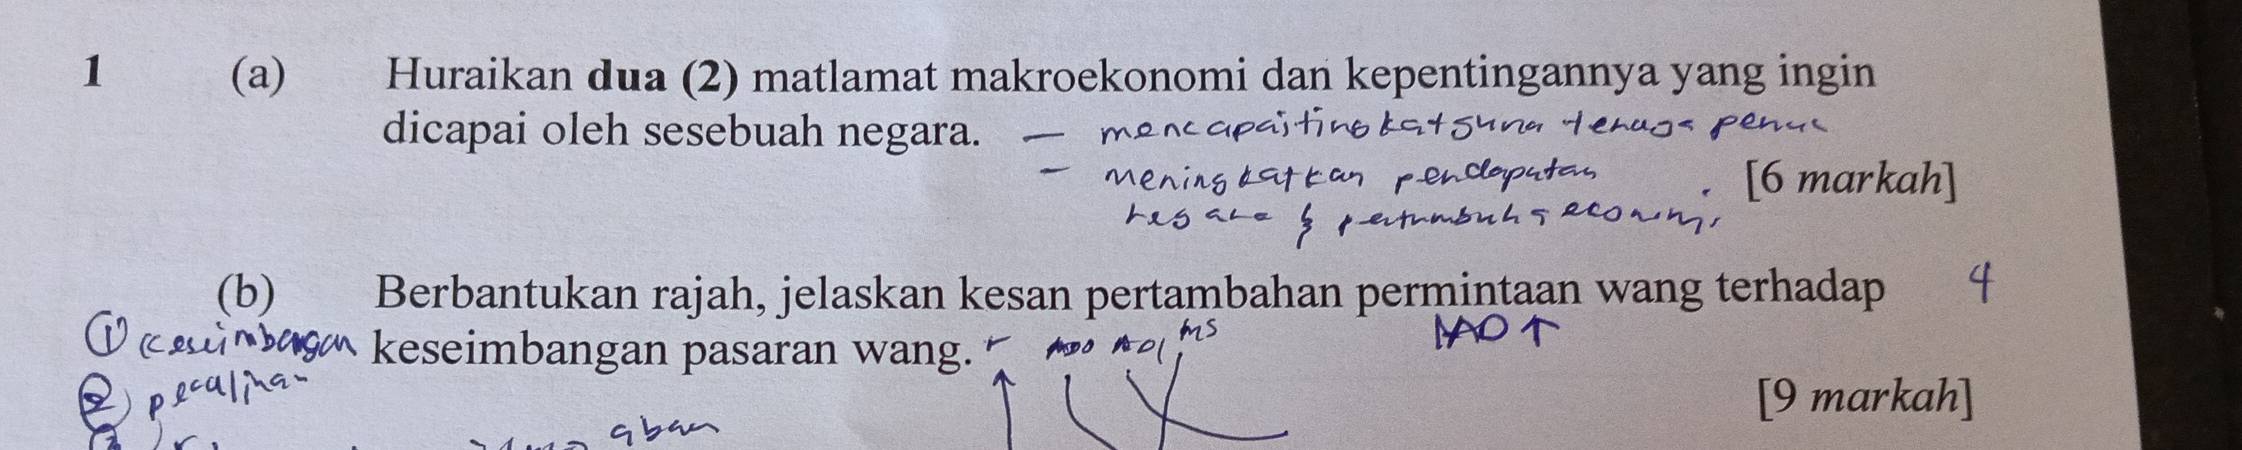 1 (a) Huraikan dua (2) matlamat makroekonomi dan kepentingannya yang ingin
dicapai oleh sesebuah negara. — mencapai tingkat guna tenaga penuh
[6 markah]
– meningkatkan pendapatan
negara & pertumbuhan economi
(b) Berbantukan rajah, jelaskan kesan pertambahan permintaan wang terhadap 4
① keseimbangan keseimbangan pasaran wang. r MS
② peralihan
[9 markah]